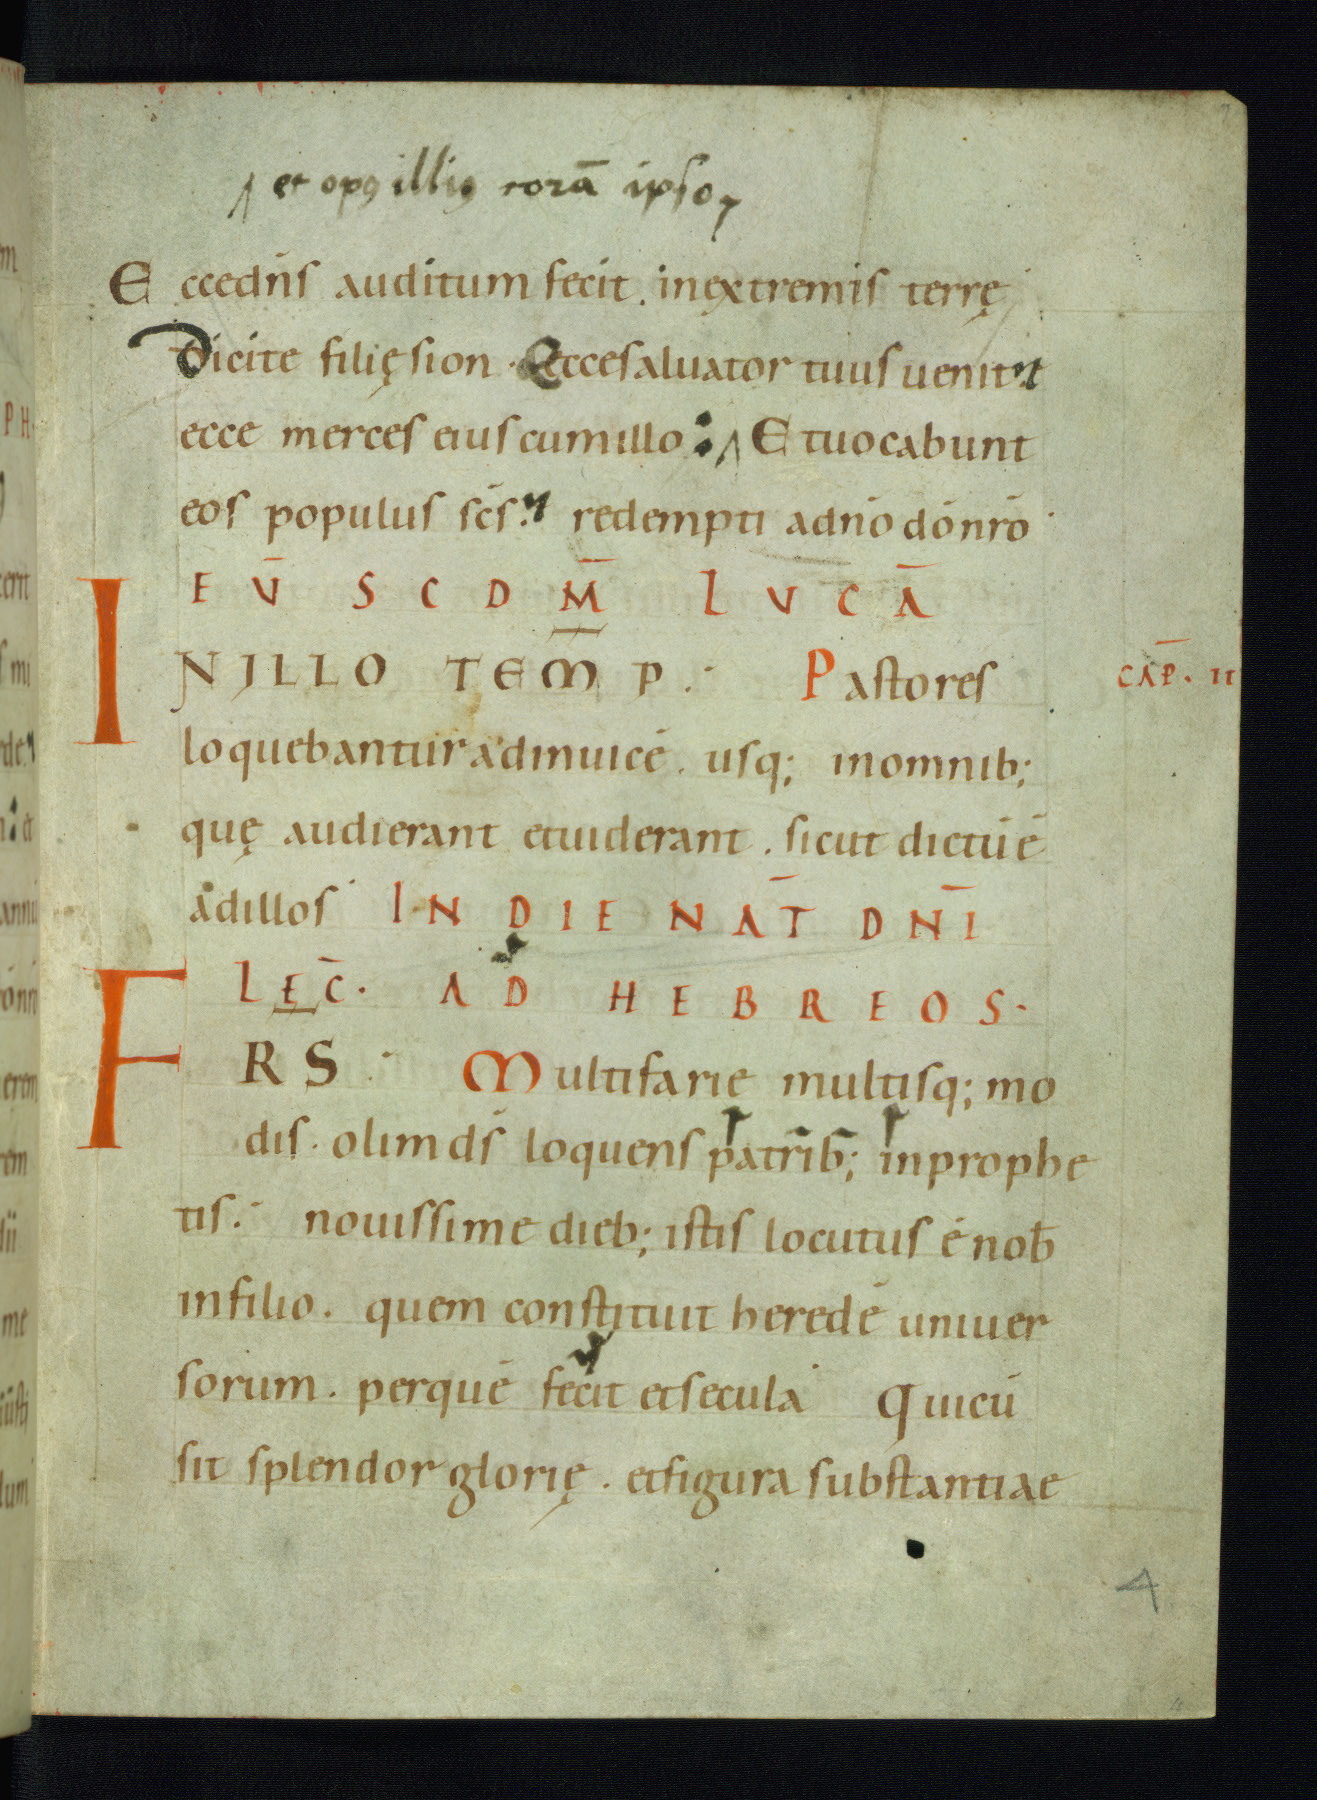 et opꝰ illiꝰ corā ipso
E ccedn̄s auditum fecit . inextremis terrę
Dicite filię sion . Eccesaluator tuus uenit
ecce merces eius cumillo : E tuocabunt
eos populus sc̄s . redempti adn̄o dōnr̄o
E V̄ S C D M̄ L V C Ā
I NILLO TEM̄ P . P astores CAP̄ . II
loquebantur adinuicē . usq; inomnib;
quę audierant etuiderant . sicut dictū ē
adillos IN DIE NAT̄ DN̄I
LEC̄ . AD HEBREOS .
F RS . M ultifarie multisq; mo
dis . olim ds̄ loquens patrib; inprophe
tis . nouissime dieb; istis locutus ē nob̄
infilio . quem constituit heredē uniuer
sorum . perquē fecit etsecula Quicū
sit splendor glorię . etfigura substantiae
4